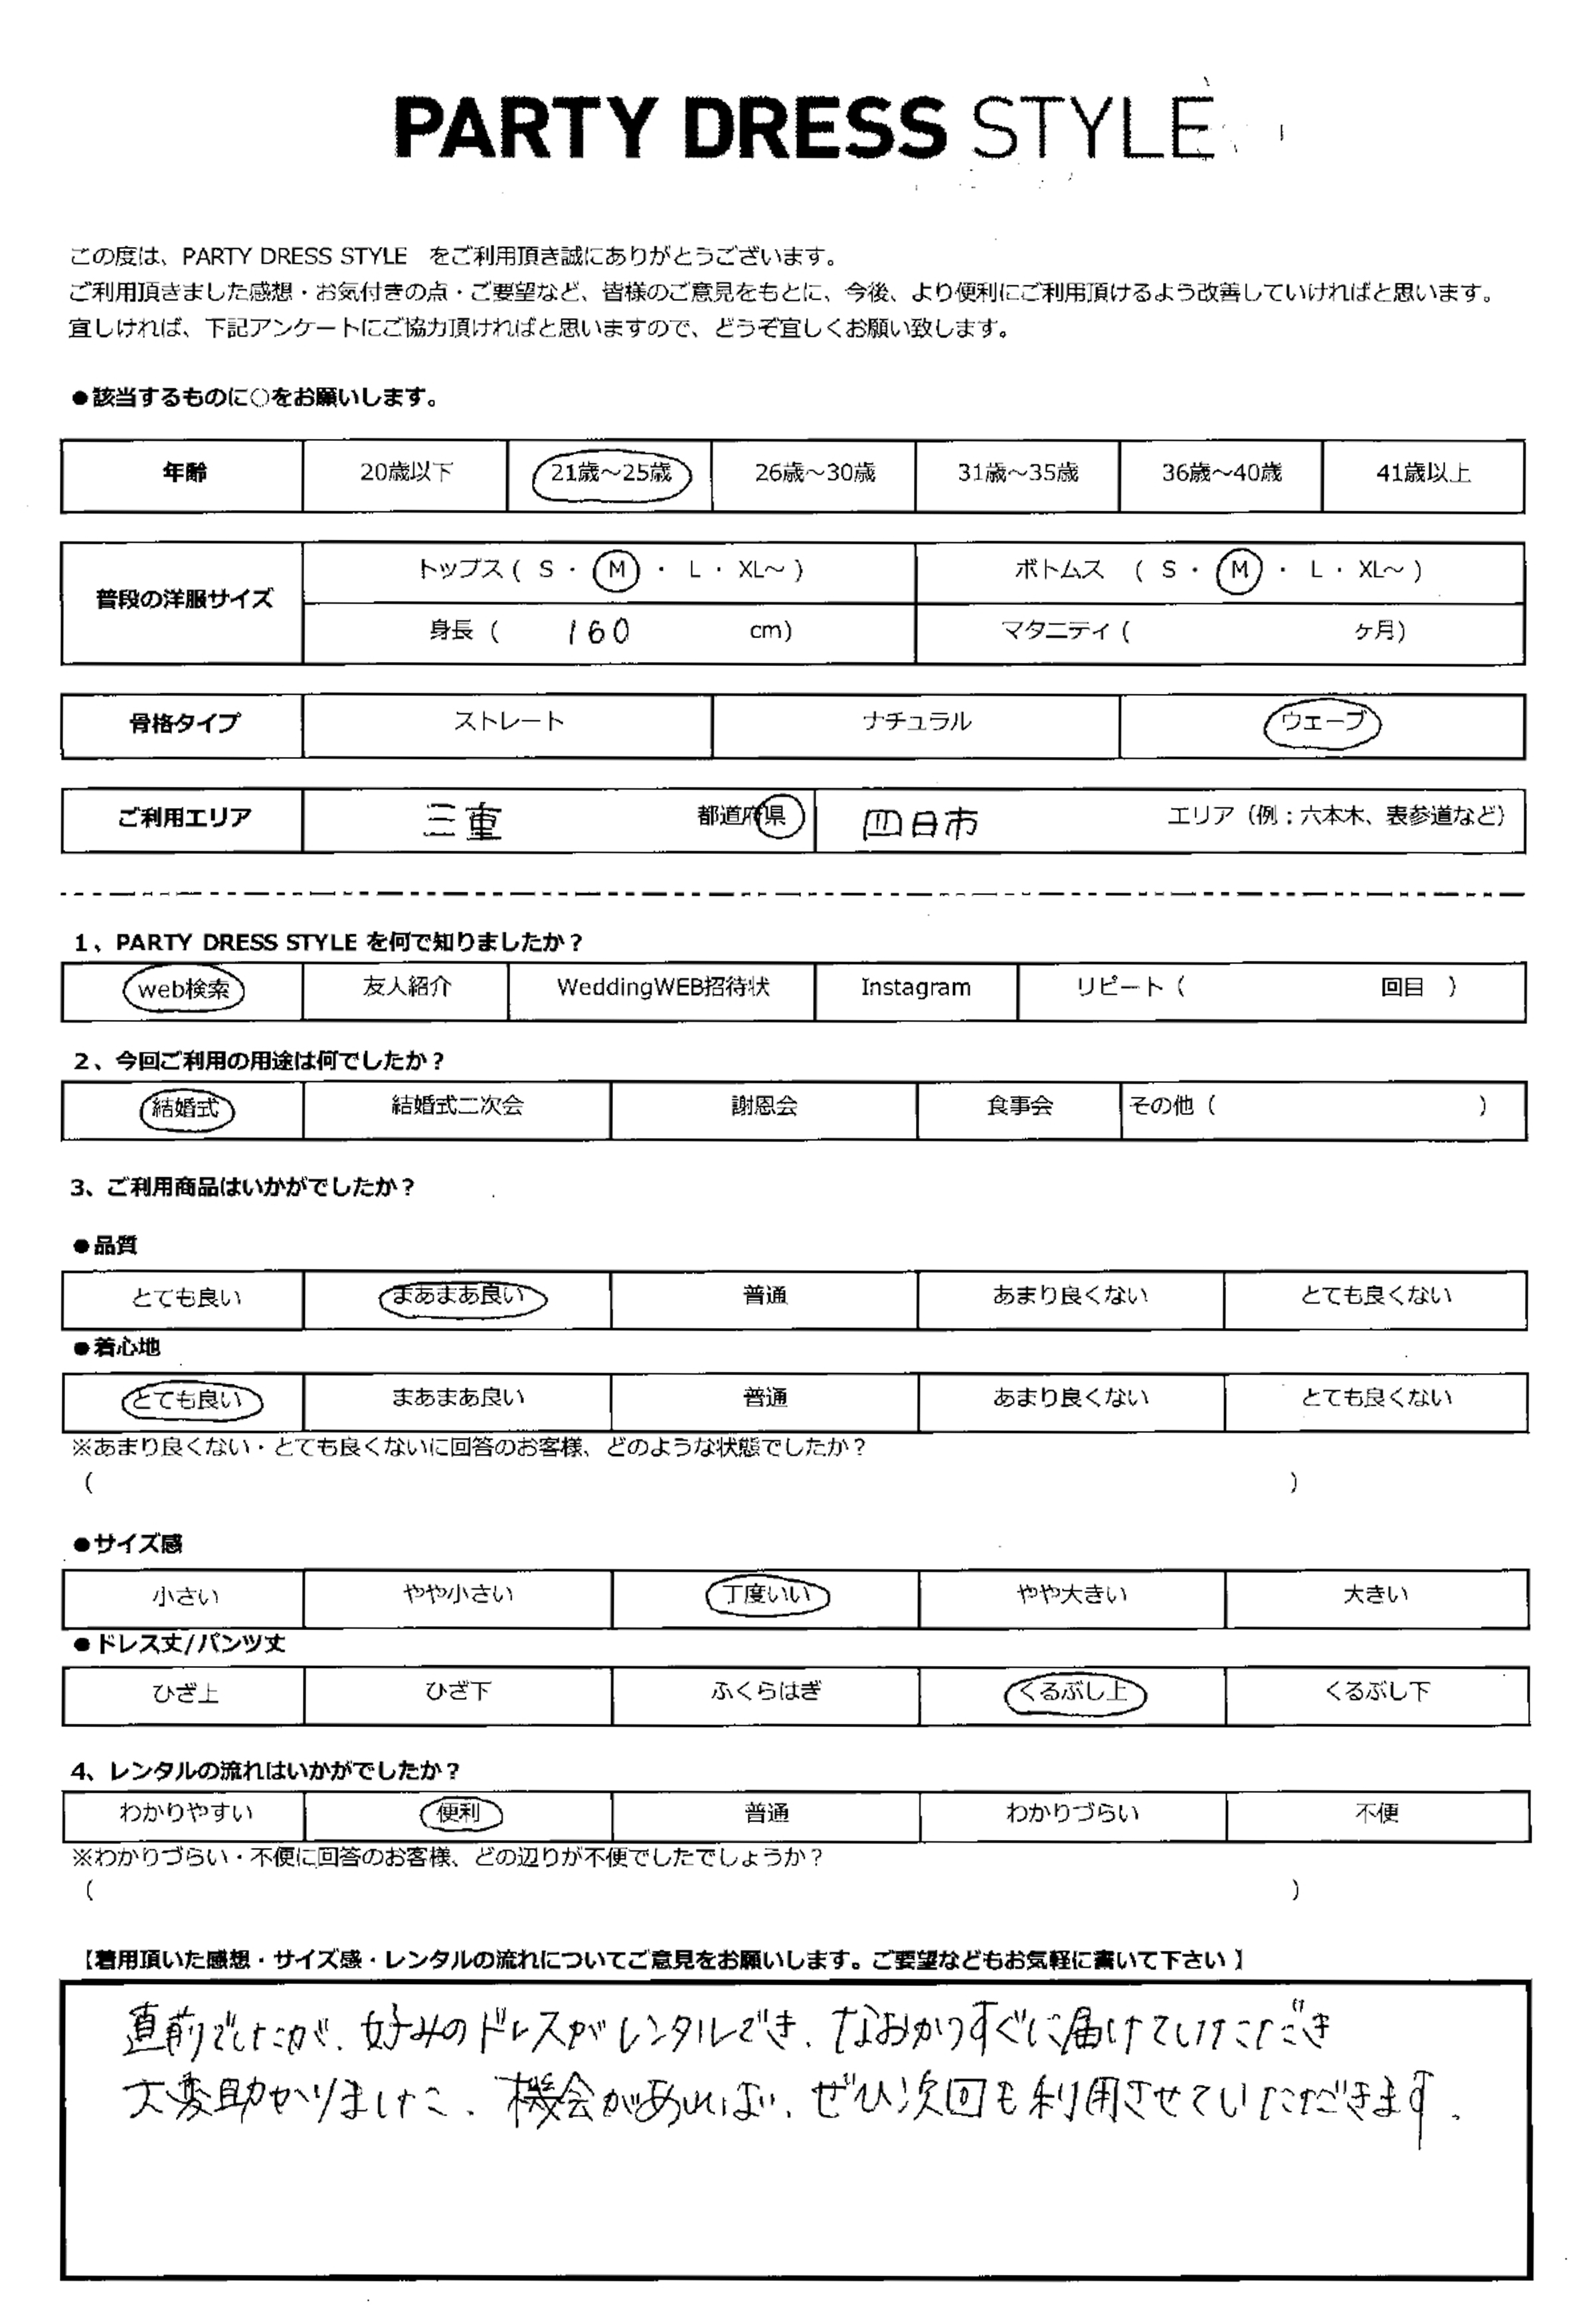 PARTY DRESS STYLE
この度は、PARTY DRESS STYLE　をご利用頂き誠にありがとうございます。
ご利用頂きました感想・お気付きの点・ご要望など、皆様のご意見をもとに、今後、より便利にご利用頂けるよう改善していければと思います。
宜しければ、下記アンケートにご協力頂ければと思いますので、どうぞ宜しくお願い致します。
●該当するものに○をお願いします。
年齢 20歳以下 21歳～25歳 26歳～30歳 31歳～35歳 36歳～40歳 41歳以上
普段の洋服サイズ トップス ( S ・ M ・ L ・ XL～ ) ボトムス ( S ・ M ・ L ・ XL～ )
身長 ( 160 cm) マタニティ ( ヶ月)
骨格タイプ ストレート ナチュラル ウェーブ
ご利用エリア 三重 都道府県 四日市 エリア（例：六本木、表参道など）
1、PARTY DRESS STYLE を何で知りましたか？
web検索 友人紹介 WeddingWEB招待状 Instagram リピート（ 回目 ）
2、今回ご利用の用途は何でしたか？
結婚式 結婚式二次会 謝恩会 食事会 その他（ ）
3、ご利用商品はいかがでしたか？
●品質
とても良い まあまあ良い 普通 あまり良くない とても良くない
●着心地
とても良い まあまあ良い 普通 あまり良くない とても良くない
※あまり良くない・とても良くないに回答のお客様、どのような状態でしたか？
（ ）
●サイズ感
小さい やや小さい 丁度いい やや大きい 大きい
●ドレス丈/パンツ丈
ひざ上 ひざ下 ふくらはぎ くるぶし上 くるぶし下
4、レンタルの流れはいかがでしたか？
わかりやすい 便利 普通 わかりづらい 不便
※わかりづらい・不便に回答のお客様、どの辺りが不便でしたでしょうか？
（ ）
【着用頂いた感想・サイズ感・レンタルの流れについてご意見をお願いします。ご要望などもお気軽に書いて下さい 】
直前でしたが、好みのドレスがレンタルでき、なおかつすぐに届けていただき
大変助かりました、機会があれば、ぜひ次回も利用させていただきます。